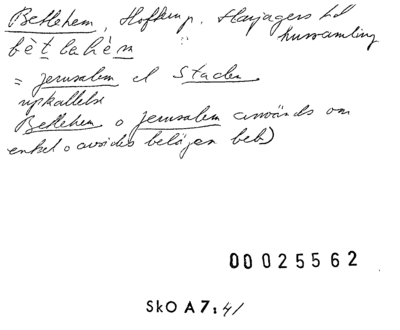 Betlehem, Hofterup, Harjagers hd
hussamling
bètlahèm
= Jerusalem el Staden
uppkallelse
Betlehem o Jerusalem används om
enkel o avsides belägen beb)
00025562
SkO A7:41